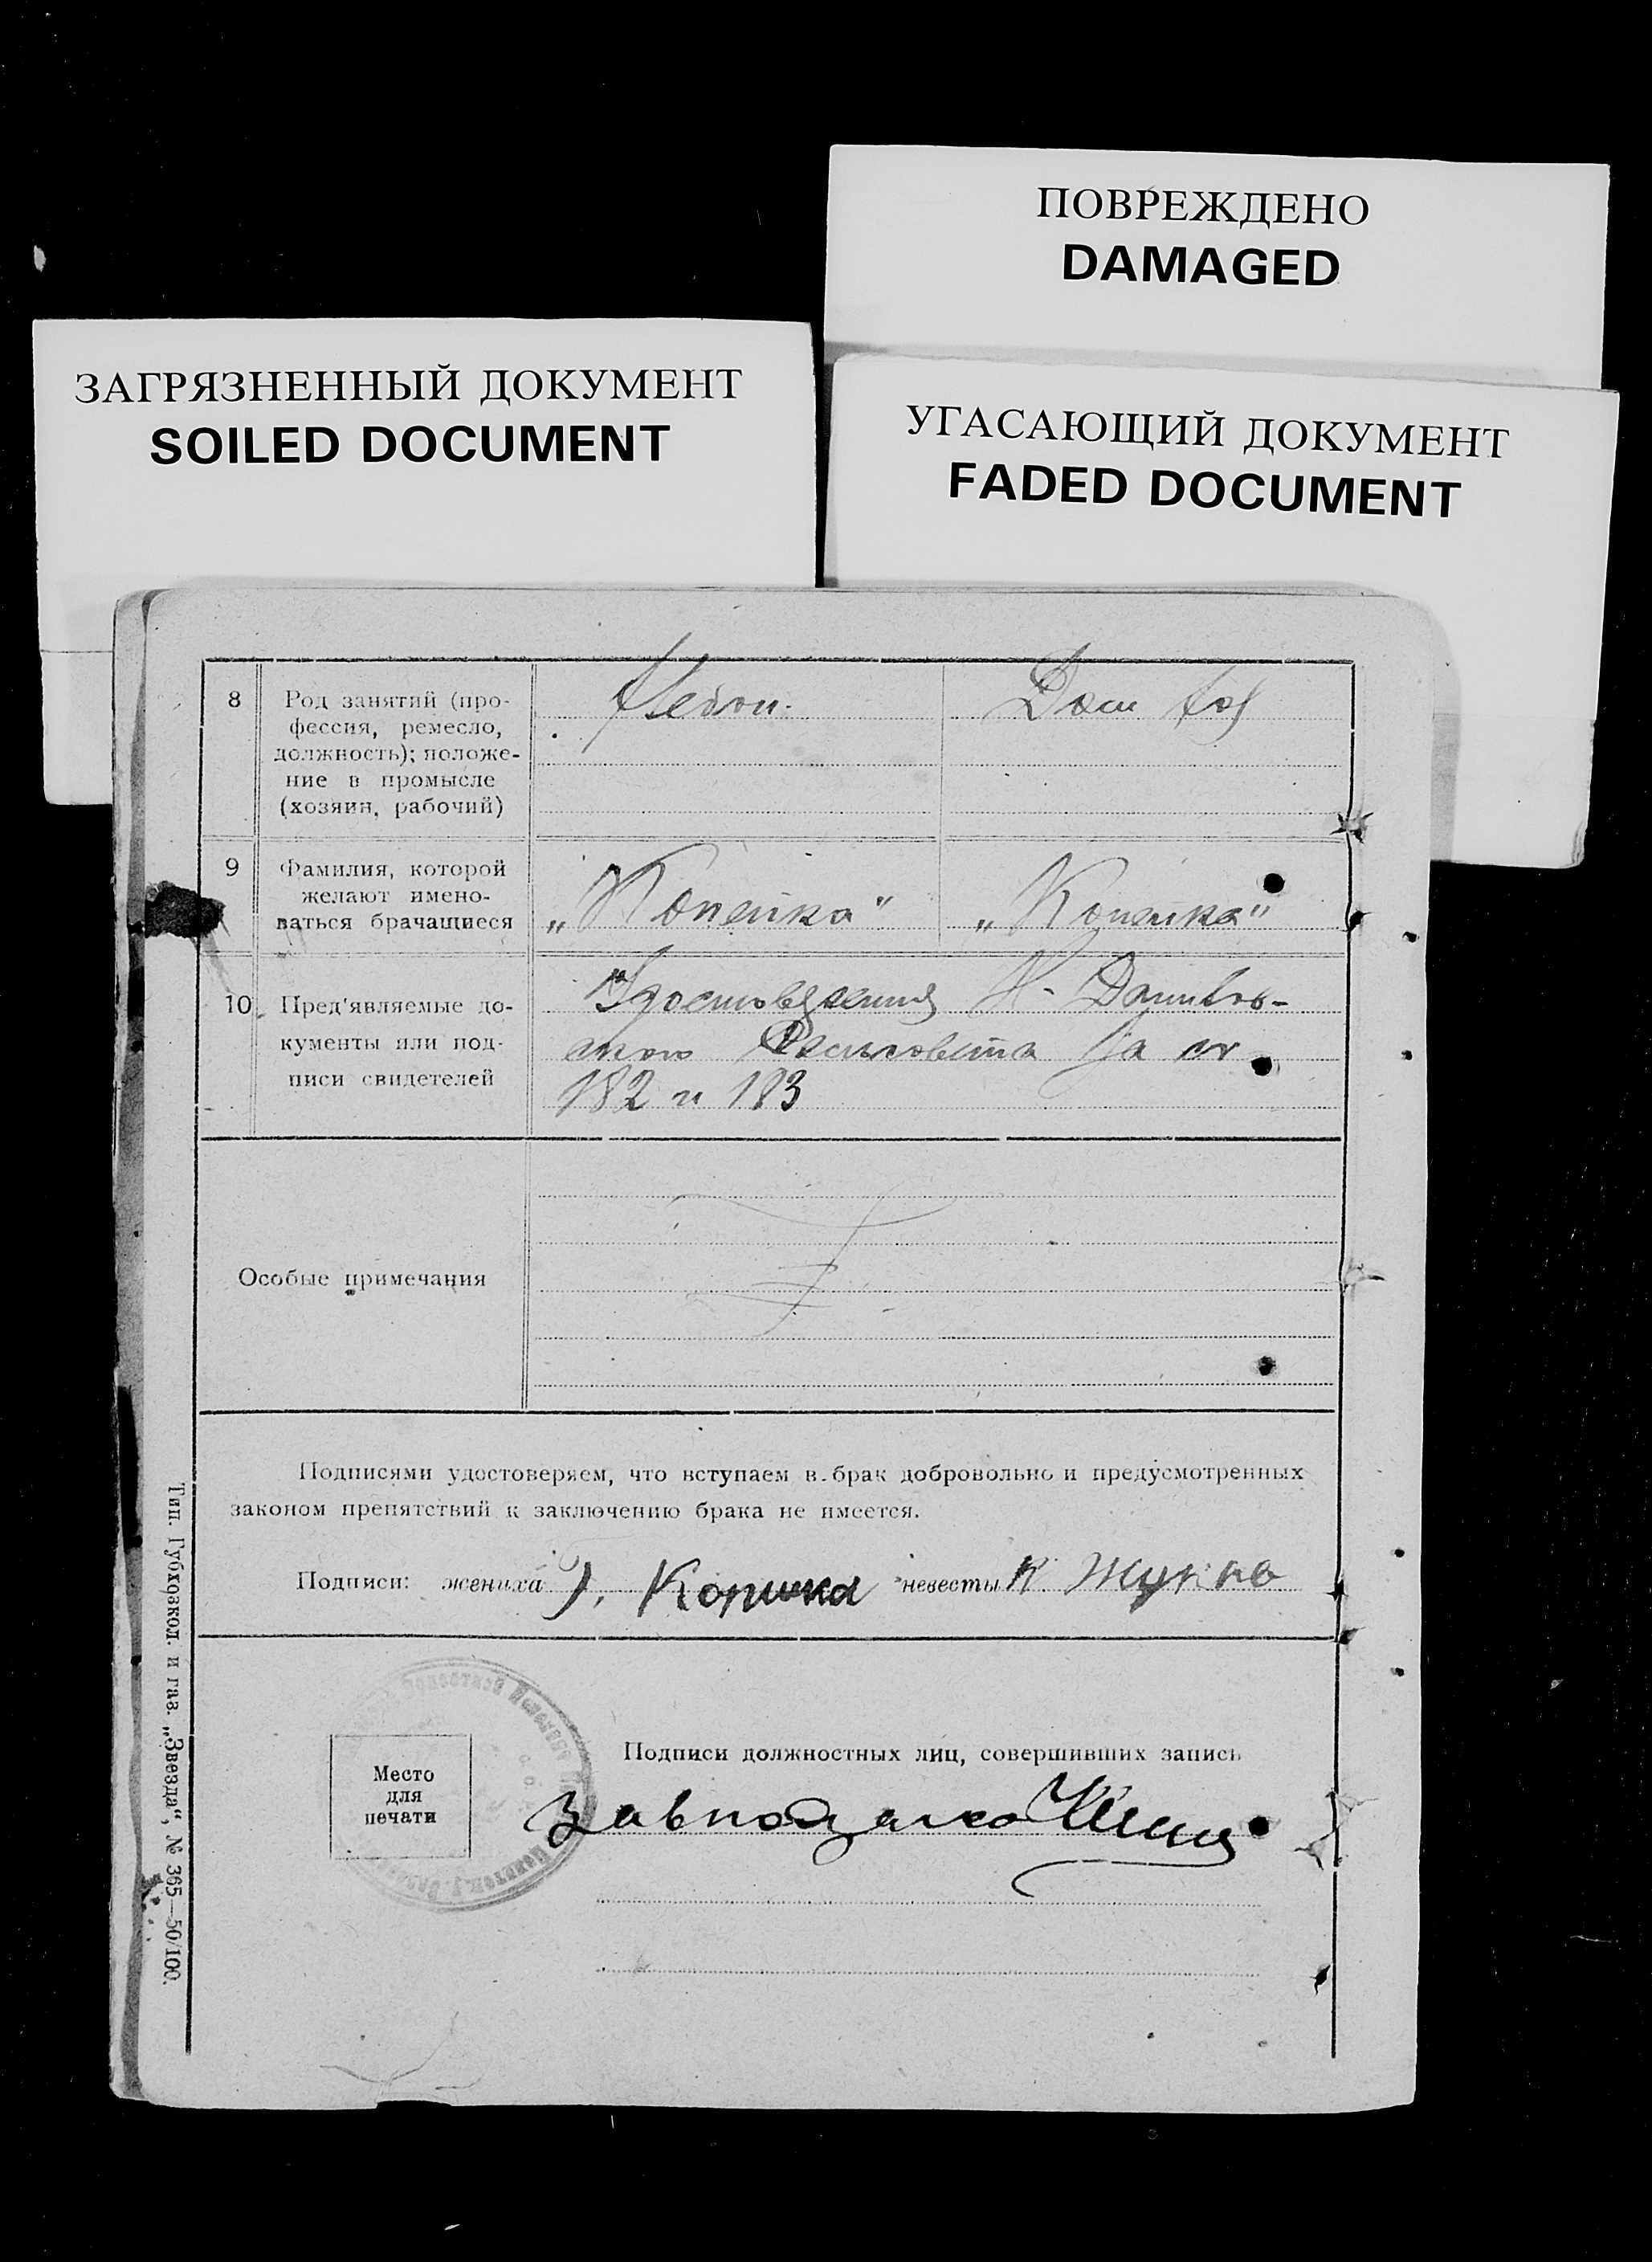 ПОВРЕЖДЕНО
DAMAGED
ЗАГРЯЗНЕННЫЙ ДОКУМЕНТ
SOILED DOCUMENT
УГАСАЮЩИЙ ДОКУМЕНТ
FADED DOCUMENT
8
Род занятий (про-
фессия, ремесло,
должность); положе-
ние в промысле
(хозяин, рабочий)
Дом хоз
9
Фамилия, которой
желают имено-
ваться брачащиеся
„Копейка" „Копейка"
10
Пред'являемые до-
кументы или под-
писи свидетелей
Удостоверения Н.
за
182 и 183
Особые примечания
Подписями удостоверяем, что вступаем в брак добровольно и предусмотренных
законом препятствий к заключению брака не имеется.
Подписи: жениха невесты К
Место
для
печати
Подписи должностных лиц, совершивших запись
Завподзагсо
Тип. Губкожкол. и газ. „Звезда", № 365—50/100.